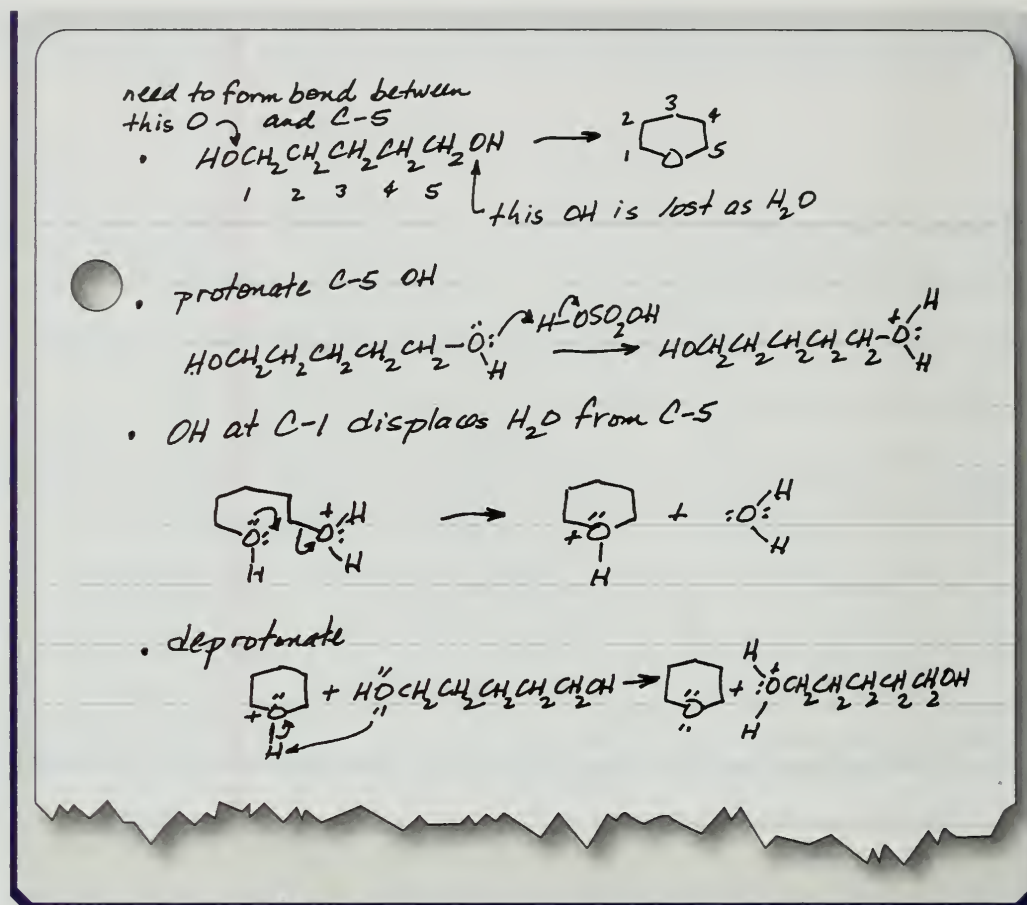 need to form bond between
this O and C-5
• HOCH2CH2CH2CH2CH2OH → 2 3 4 1 5 O
1 2 3 4 5
this OH is lost as H2O
• protonate C-5 OH
HOCH2CH2CH2CH2CH2-Ö: H H-OSO2OH → HOCH2CH2CH2CH2CH2-O: + H H
• OH at C-1 displaces H2O from C-5
Ö: H +O: H H → +Ö H + :O: H H
• deprotonate
+Ö H + HÖCH2CH2CH2CH2CH2OH → Ö + H :O+ CH2CH2CH2CH2CH2OH H